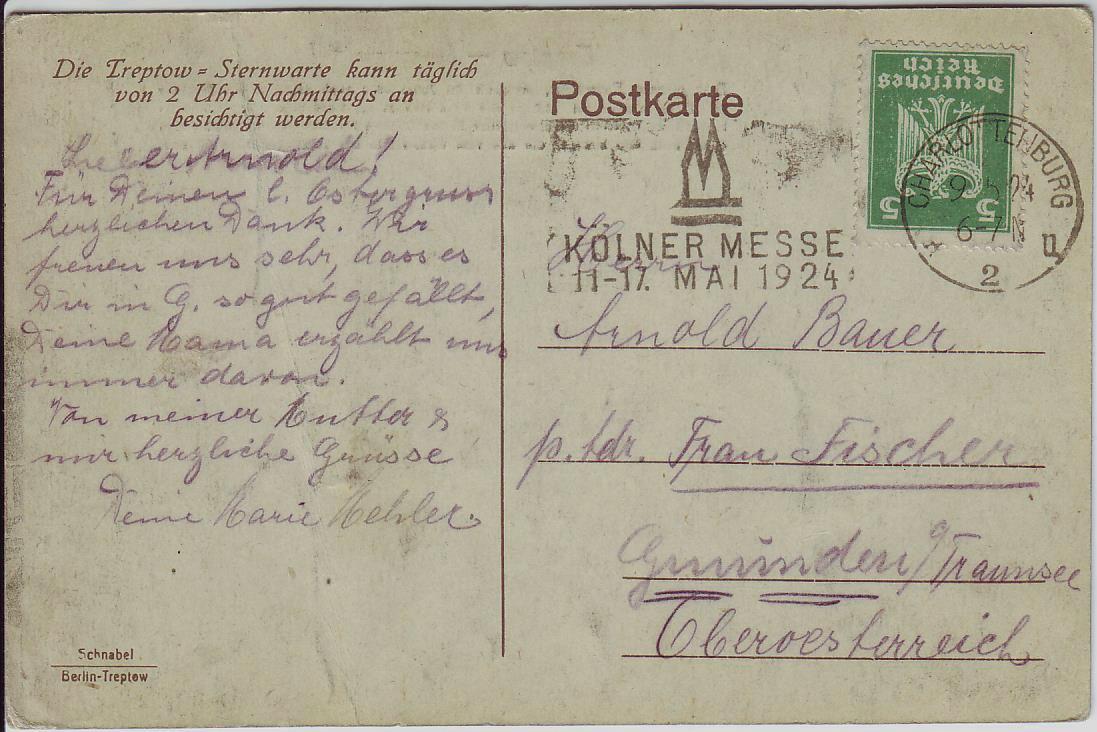 Die Treptow = Sternwarte kann täglich
von 2 Uhr Nachmittags an
besichtigt werden.
Lieber Arnold!
Für Deinen l. Ostergruss
herzlichen Dank. Wir
freuen uns sehr, dass es
Dir in G. so gut gefällt,
Deine Mama erzählt uns
immer davon.
Von meiner Mutter &
mir herzliche Grüsse
Deine Marie Mehler.
Schnabel
Berlin-Treptow
Postkarte
KÖLNER MESSE
11-17. MAI 1924
Deutsches
Reich
5 5
CHARLOTTENBURG
9 5 24
6-7 N
2
Herrn
Arnold Bauer
p. Adr. Frau Fischer
Gmunden a/Traunsee
Oberoesterreich